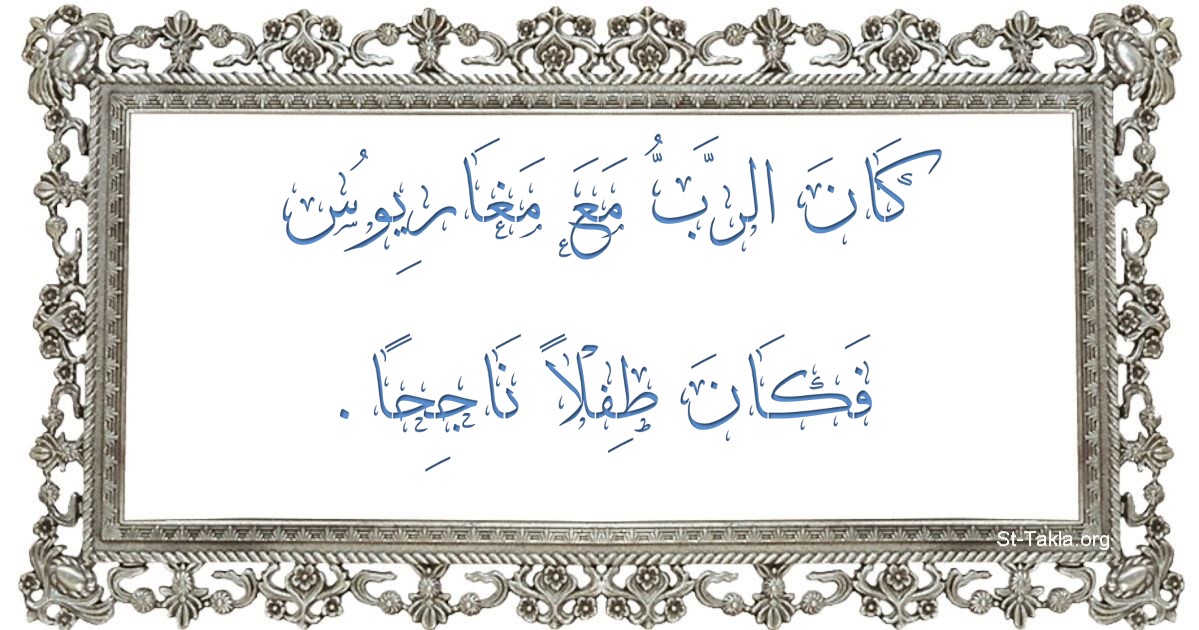 كَانَ الرَّبُّ مَعَ مَغَارِيوُس
فَكَانَ طِفْلاً نَاجِحًا .
St-Takla.org